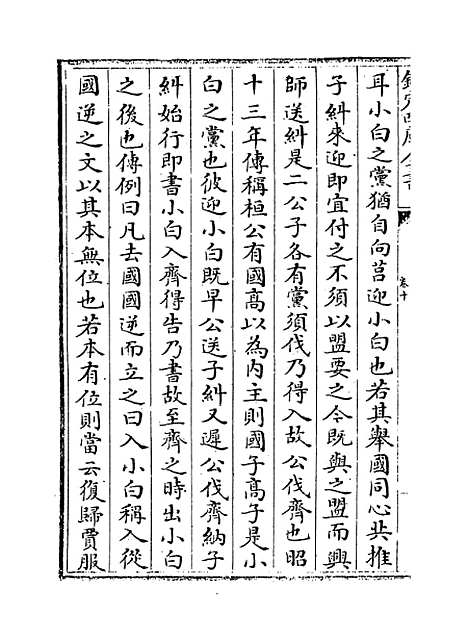 耳小白之黨猶自向莒迎小白也若其舉國同心共推
子糾來迎即宜付之不須以盟要之今既與之盟而興
師送糾是二公子各有黨須伐乃得入故公伐齊也昭
十三年傳稱桓公有國高以為內主則國子高子是小
白之黨也彼迎小白既早公送子糾又遲公伐齊納子
糾始行即書小白入齊得告乃書故至齊之時出小白
之後也傳例曰凡去國國逆而立之曰入小白稱入從
國逆之文以其本無位也若本有位則當云復歸賈服
卷十